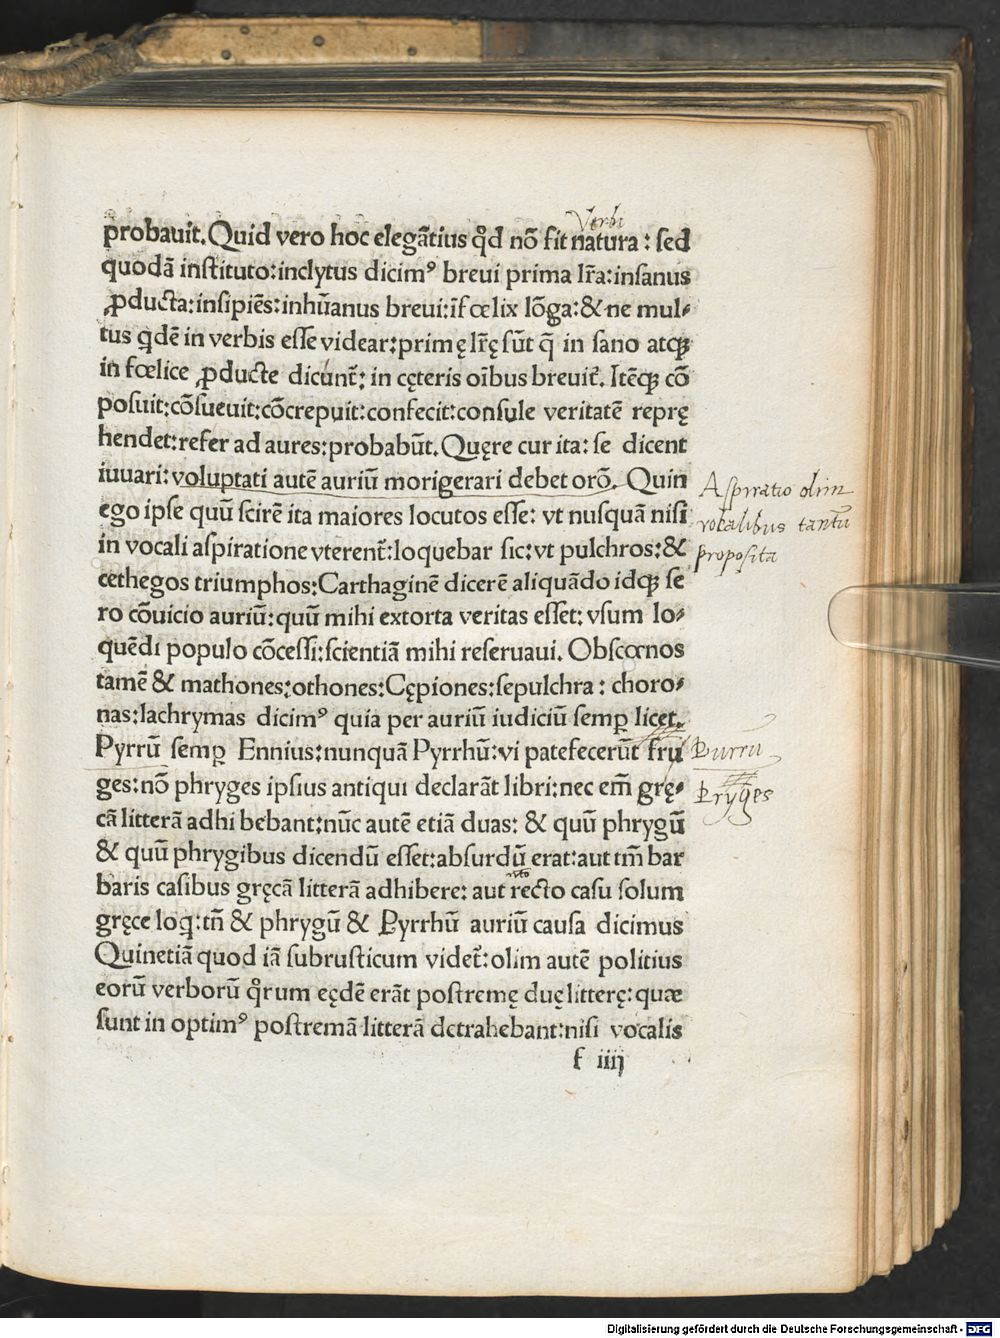 Verbi
probauit. Quid vero hoc elegãtius qd̃ nõ fit natura : sed
quodã instituto: inclytus dicimꝰ breui prima lr̃a: insanus
ꝓducta: insipiẽs: inhũanus breui: ĩfœlix lõga: & ne mul⸗
tus qdẽ in verbis esse videar: primę lr̃ę sũt q̃ in sano atqꝫ
in fœlice ꝓducte dicũnt̃: in cęteris oĩbus breuit̃. Itẽqꝫ cõ
posuit: cõsueuit: cõcrepuit: confecit: consule veritatẽ reprę
hendet: refer ad aures: probabũt. Quęre cur ita: se dicent
iuuari: voluptati autẽ auriũ morigerari debet orõ. Quin
ego ipse quũ scirẽ ita maiores locutos esse: vt nusquã nisi
in vocali aspiratione vterent̃: loquebar sic: vt pulchros: &
cethegos triumphos: Carthaginẽ dicerẽ aliquãdo idqꝫ se
ro cõuicio auriũ: quũ mihi extorta veritas esset: vsum lo⸗
quẽdi populo cõcessi: scientiã mihi reseruaui. Obscœnos
tamẽ & mathones: othones: Cępiones: sepulchra : choro⸗
nas: lachrymas dicimꝰ quia per auriũ iudiciũ semꝑ licet.
Pyrrũ semꝑ Ennius: nunquã Pyrrhũ: vi patefecerũt fru
ges: nõ phryges ipsius antiqui declarãt libri: nec em̃ grę⸗
cã litterã adhi bebant: nũc autẽ etiã duas: & quũ phrygũ
& quũ phrygibus dicendũ esset: absurdũ erat: aut tm̃ bar
baris casibus gręcã litterã adhibere: aut recto casu solum
gręce loq: tñ & phrygũ & Pyrrhũ auriũ causa dicimus
Quinetiã quod iã subrusticum videt̃: olim autẽ politius
eorũ verborũ qr̃um eędẽ erãt postremę duę litterę: quæ
sunt in optimꝰ postremã litterã detrahebant: nisi vocalis
f iiij
Aspiratio olim
vocalibus tantũ
proposita
Burrũ
Bryges
Digitalisierung gefördert durch die Deutsche Forschungsgemeinschaft - DFG